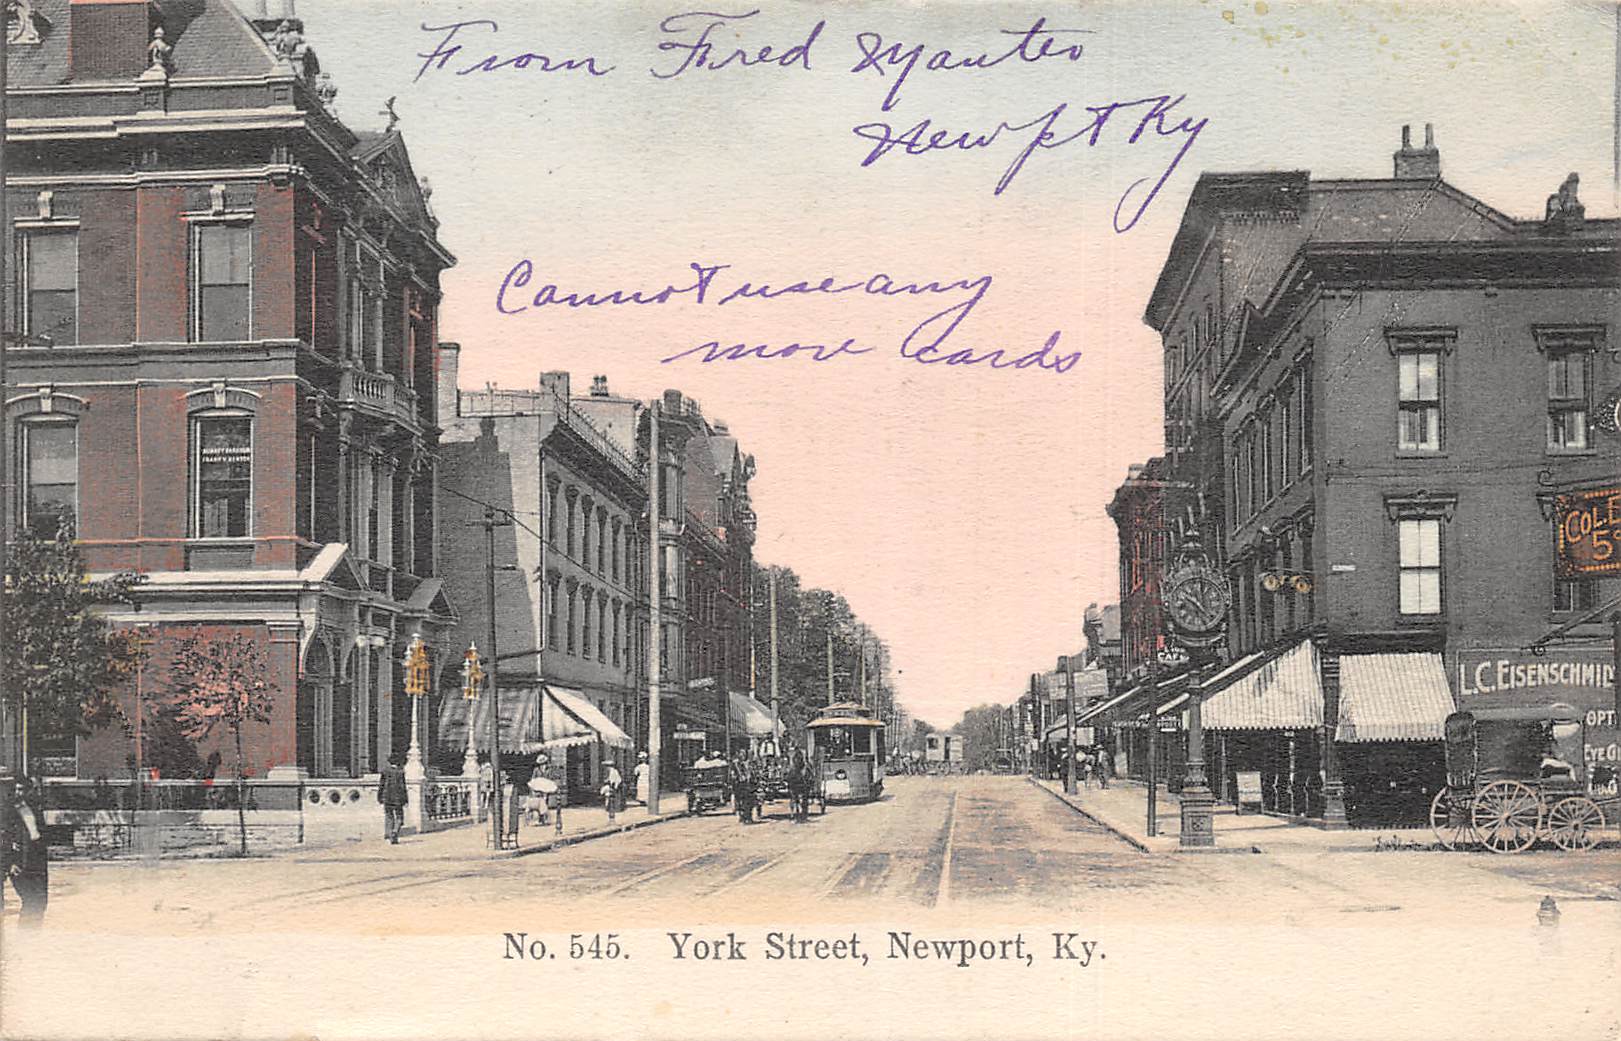 From Fred
Newpt Ky
Cannot use any
more cards
COL.
5¢
CAFE
L.C. EISENSCHMID
OPT
EYE G
No. 545. York Street, Newport, Ky.